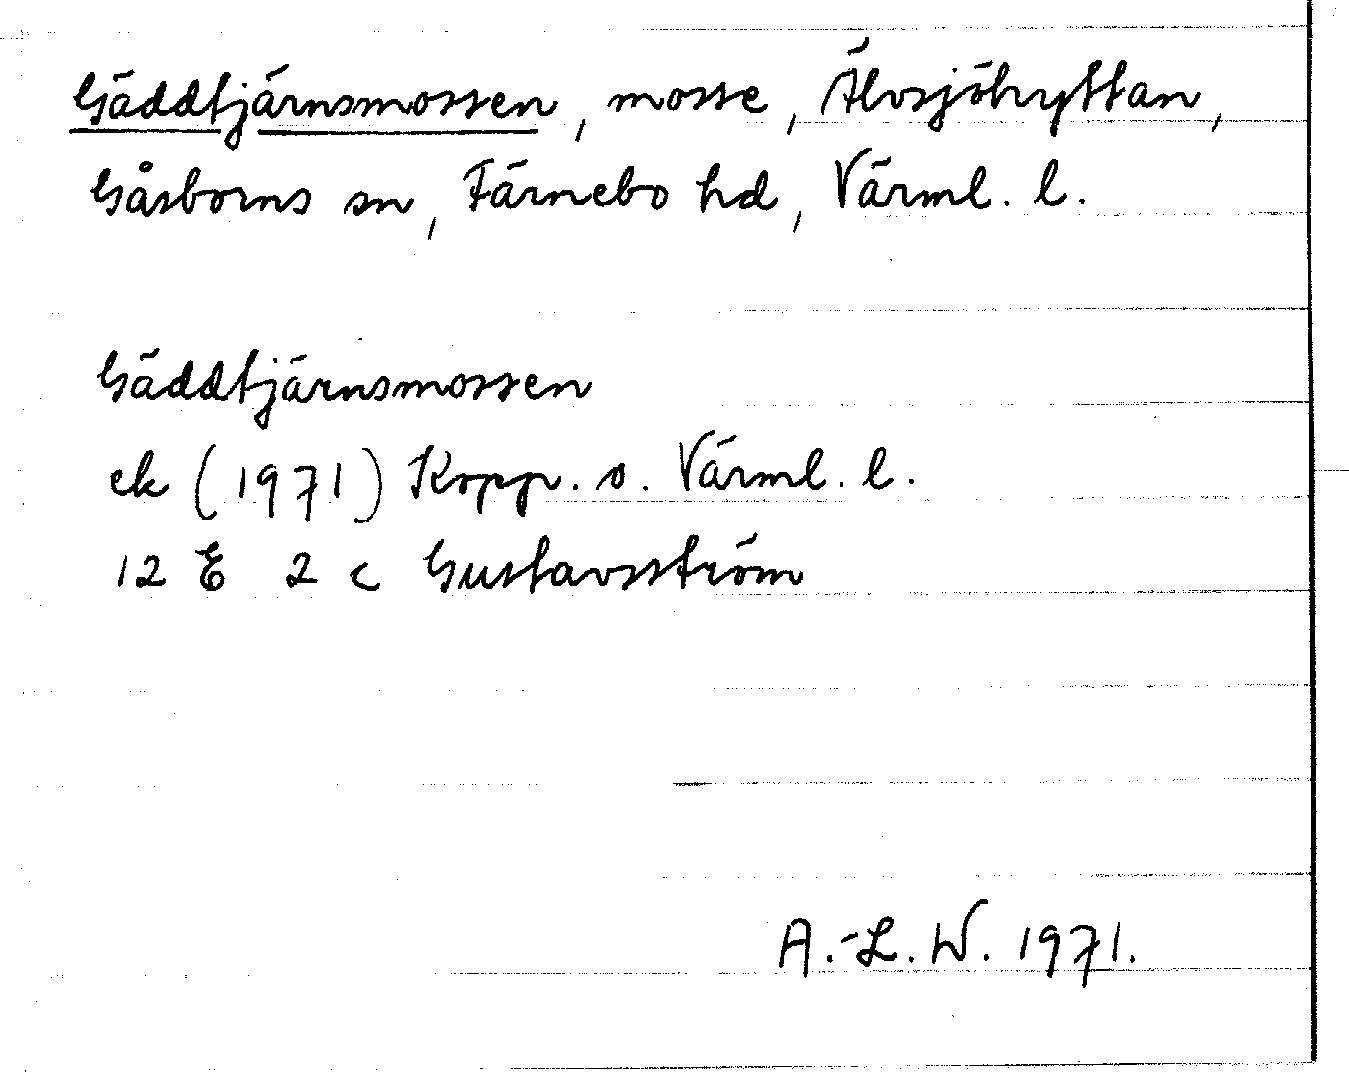 Gäddtjärnsmossen, mosse, Älvsjöhyttan,
Gåsborns sn, Färnebo hd, Värml. l.
Gäddtjärnsmossen
ek (1971) Kopp. o. Värml. l.
12 E 2 c Gustavsström
A.-L. W. 1971.